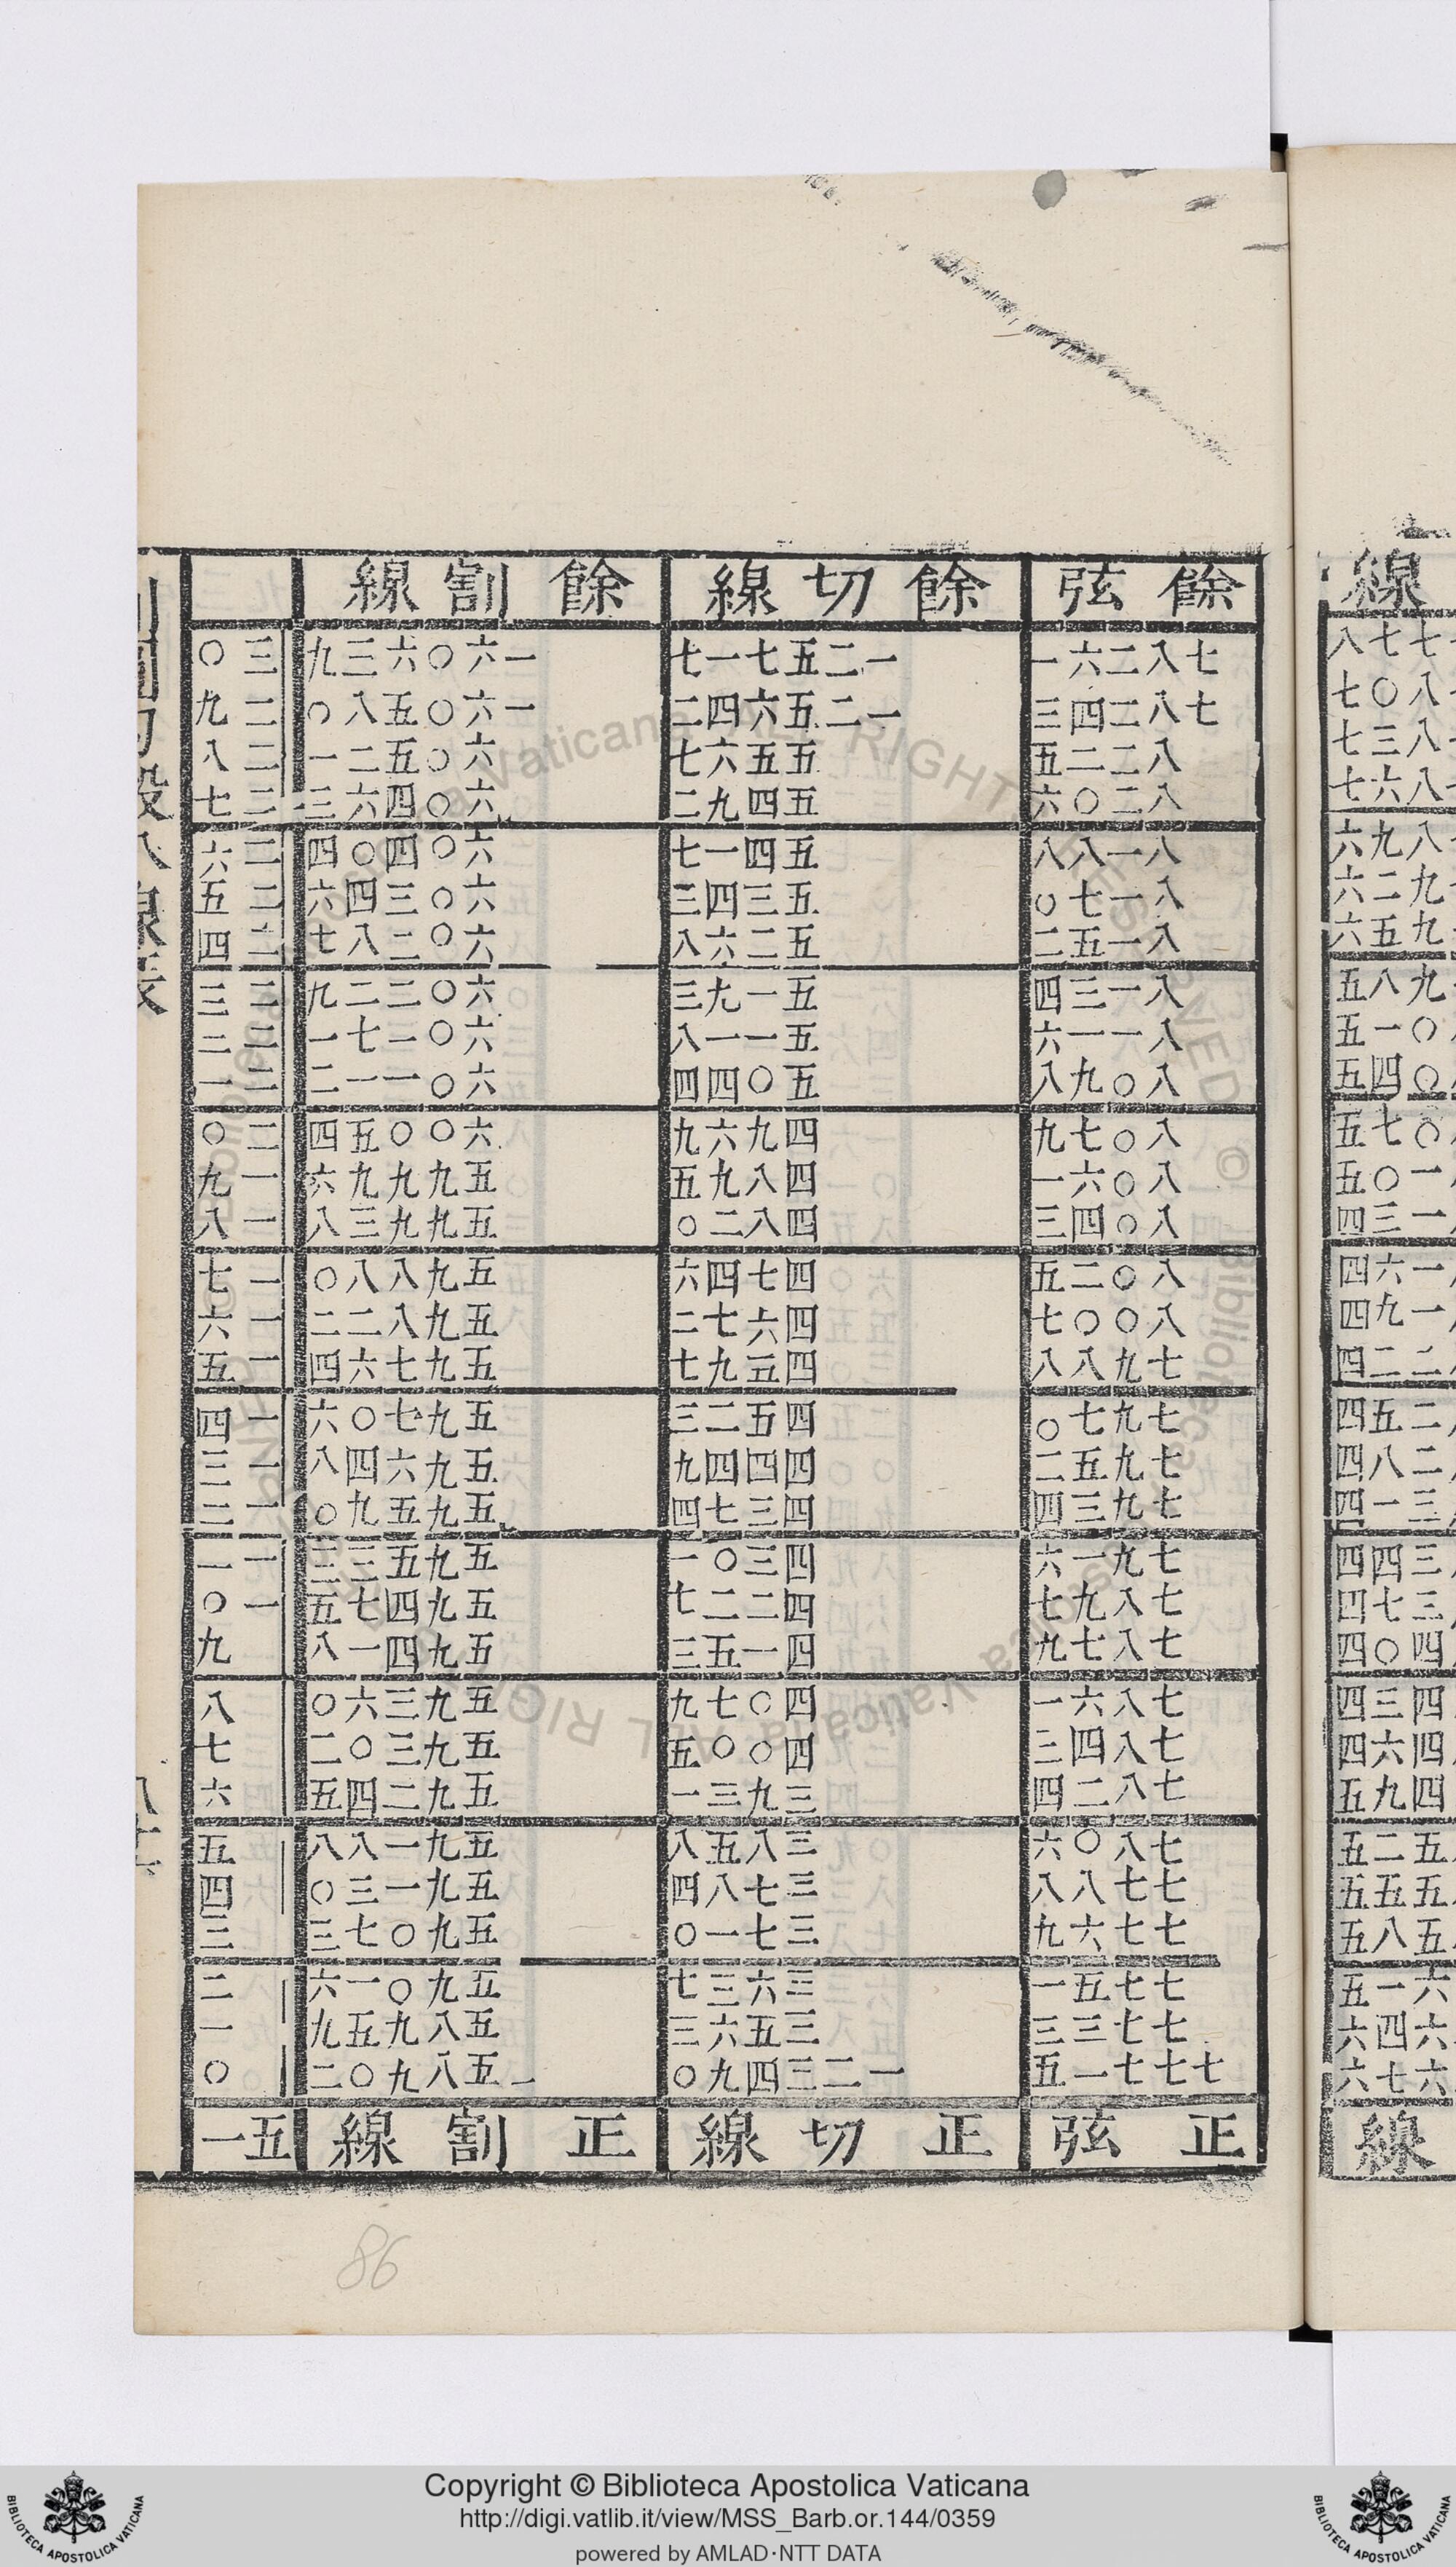 線
七七八
八〇七
八三七
八六七
八九六
九二六
九五六
九八五
〇一五
〇四五
〇七五
一〇五
一三四
一六四
一九四
二二四
二五四
二八四
三一四
三四四
三七四
四〇四
四三四
四六四
四九五
五二五
五五五
五八五
六一五
六四六
六七六
線
餘弦 餘切線 餘割線
七八二六一 一二五七一七 一六〇六三九 三〇
七八二四三 一二五六四二 一六〇五八〇 二九
八二二五 五五六七 六〇五二一 二八
八二〇六 五四九二 六〇四六三 二七
八一八八 五四一七 六〇四〇四 二六
八一七〇 五三四三 六〇三四六 二五
八一五二 五二六八 六〇二八七 二四
八一三四 五一九三 六〇二二九 二三
八一一六 五一一八 六〇二七一 二二
八〇九八 五〇四四 六〇一一二 二一
八〇七九 四九六九 六〇〇五四 二〇
八〇六一 四八九五 五九九九六 一九
八〇四三 四八二〇 五九九三八 一八
八〇二五 四七四六 五九八八〇 一七
八〇〇七 四六七二 五九八二二 一六
七九八八 四五九七 五九七六四 一五
七九七〇 四五二三 五九七〇六 一四
七九五二 四四四九 五九六四八 一三
七九三四 四三七四 五九五九〇 一二
七九一六 四三〇一 五九五三三 一一
七八九七 四二二七 五九四七五 一〇
七八七九 四一五三 五九四一八 九
七八六一 四〇七九 五九三六〇 八
七八四三 四〇〇五 五九三〇二 七
七八二四 三九三一 五九二四五 六
七八〇六 三八五八 五九一八八 五
七七八八 三七八四 五九一三〇 四
七七六九 三七一〇 五九〇七三 三
七七五一 三六三七 五九〇一六 二
七七三三 三五六三 五八九五九 一
七七七一五 一二三四九〇 一五八九〇二 〇
正弦 正切線 正割線 五一
86
Copyright © Biblioteca Apostolica Vaticana
http://digi.vatlib.it/view/MSS_Barb.or.144/0359
powered by AMLAD·NTT DATA
BIBLIOTECA APOSTOLICA VATICANA
BIBLIOTECA APOSTOLICA VATICANA